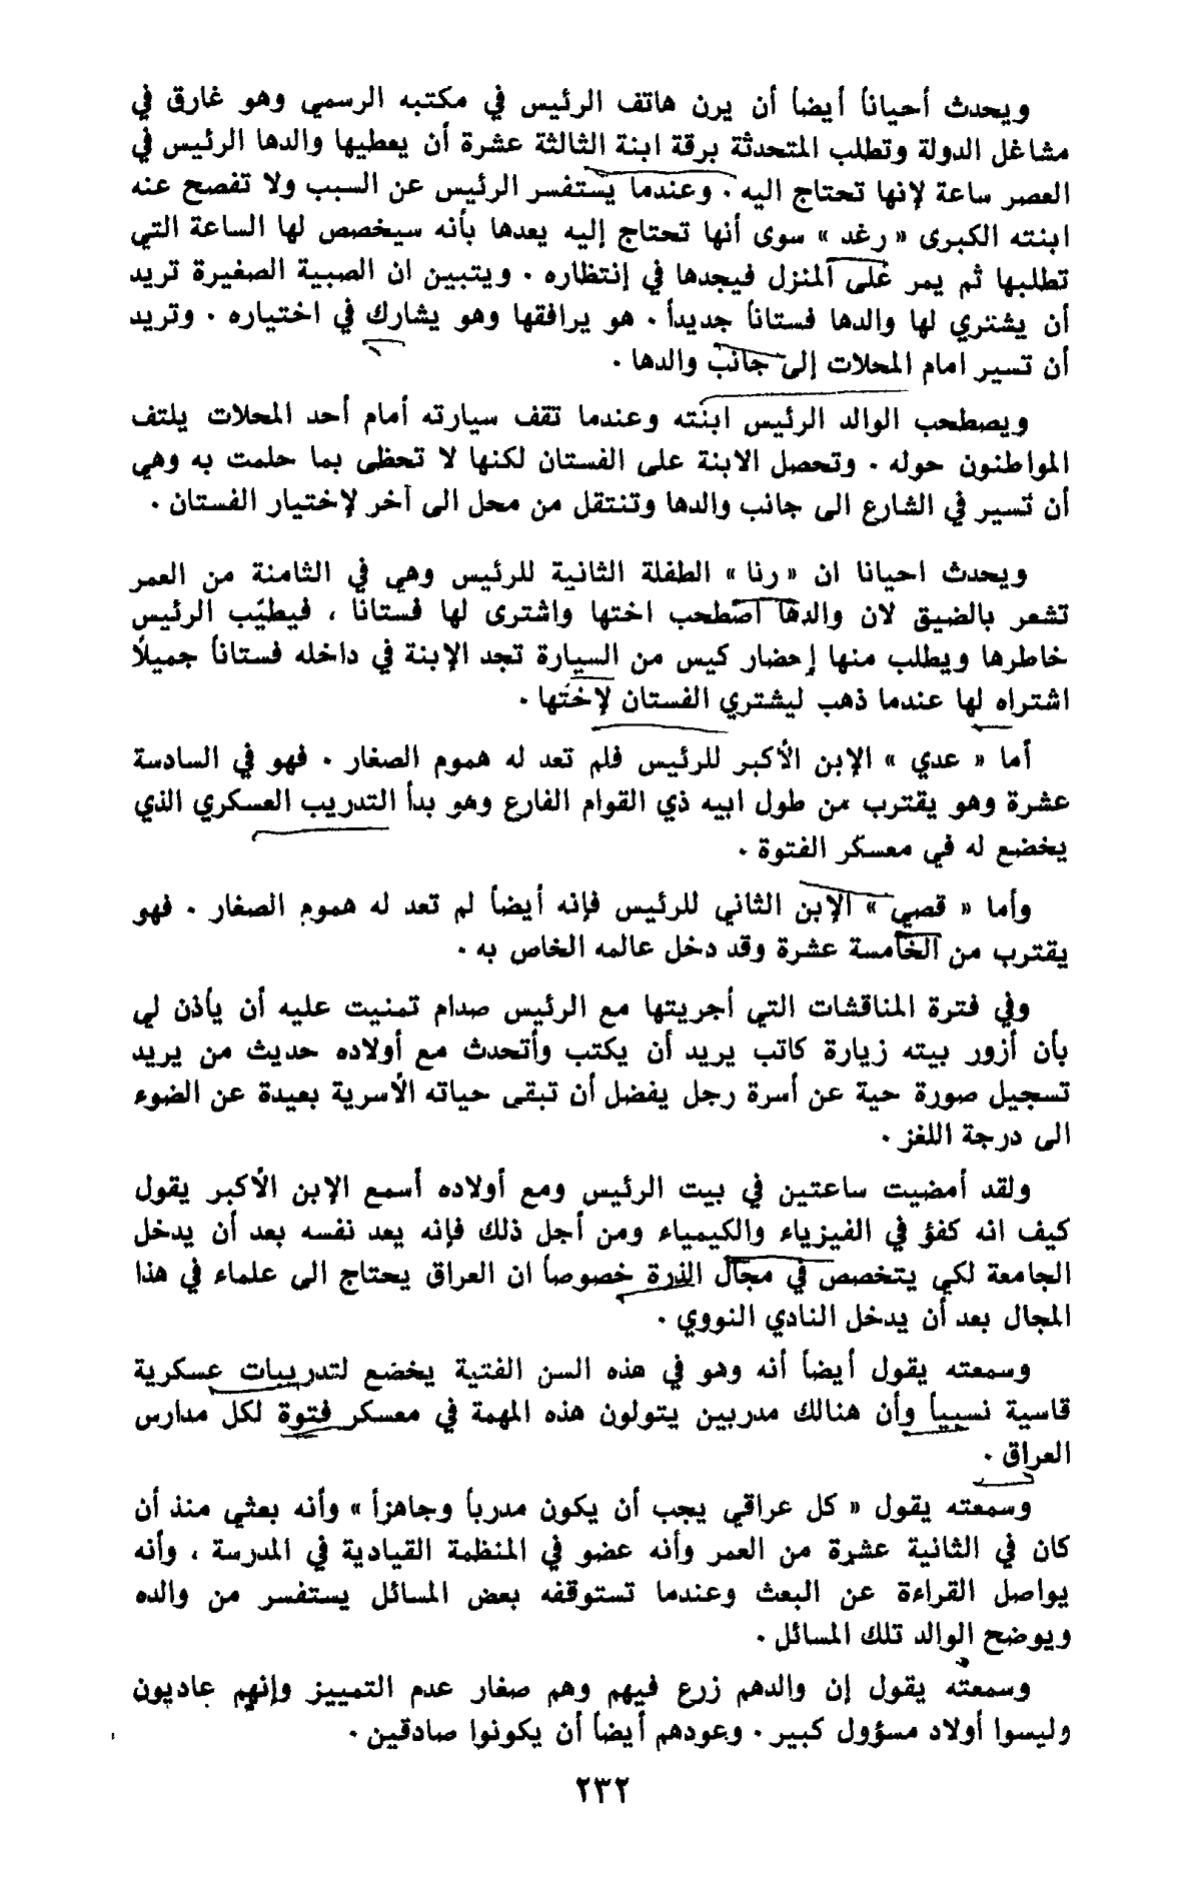 ويحدث أحياناً أيضاً أن يرن هاتف الرئيس في مكتبه الرسمي وهو غارق في
مشاغل الدولة وتطلب المتحدثة برقة ابنة الثالثة عشرة أن يعطيها والدها الرئيس في
العصر ساعة لإنها تحتاج اليه . وعندما يستفسر الرئيس عن السبب ولا تفصح عنه
ابنته الكبرى « رغد » سوى أنها تحتاج إليه يعدها بأنه سيخصص لها الساعة التي
تطلبها ثم يمر على المنزل فيجدها في إنتظاره . ويتبين ان الصبية الصغيرة تريد
أن يشتري لها والدها فستاناً جديداً . هو يرافقها وهو يشارك في اختياره . وتريد
أن تسير امام المحلات إلى جانب والدها .
ويصطحب الوالد الرئيس ابنته وعندما تقف سيارته أمام أحد المحلات يلتف
المواطنون حوله . وتحصل الابنة على الفستان لكنها لا تحظى بما حلمت به وهي
أن تسير في الشارع الى جانب والدها وتنتقل من محل الى آخر لإختيار الفستان .
ويحدث احيانا ان « رنا » الطفلة الثانية للرئيس وهي في الثامنة من العمر
تشعر بالضيق لان والدها اصطحب اختها واشترى لها فستاناً ، فيطيّب الرئيس
خاطرها ويطلب منها إحضار كيس من السيارة تجد الإبنة في داخله فستاناً جميلاً
اشتراه لها عندما ذهب ليشتري الفستان لإختها .
أما « عدي » الإبن الأكبر للرئيس فلم تعد له هموم الصغار . فهو في السادسة
عشرة وهو يقترب من طول ابيه ذي القوام الفارع وهو بدأ التدريب العسكري الذي
يخضع له في معسكر الفتوة .
وأما « قصي » الإبن الثاني للرئيس فإنه أيضاً لم تعد له هموم الصغار . فهو
يقترب من الخامسة عشرة وقد دخل عالمه الخاص به .
وفي فترة المناقشات التي أجريتها مع الرئيس صدام تمنيت عليه أن يأذن لي
بأن أزور بيته زيارة كاتب يريد أن يكتب وأتحدث مع أولاده حديث من يريد
تسجيل صورة حية عن أسرة رجل يفضل أن تبقى حياته الأسرية بعيدة عن الضوء
الى درجة اللغز .
ولقد أمضيت ساعتين في بيت الرئيس ومع أولاده أسمع الإبن الأكبر يقول
كيف انه كفؤ في الفيزياء والكيمياء ومن أجل ذلك فإنه يعد نفسه بعد أن يدخل
الجامعة لكي يتخصص في مجال الذرة خصوصاً ان العراق يحتاج الى علماء في هذا
المجال بعد أن يدخل النادي النووي .
وسمعته يقول أيضاً أنه وهو في هذه السن الفتية يخضع لتدريبات عسكرية
قاسية نسبياً وأن هنالك مدربين يتولون هذه المهمة في معسكر فتوة لكل مدارس
العراق .
وسمعته يقول « كل عراقي يجب أن يكون مدرباً وجاهزاً » وأنه بعثي منذ أن
كان في الثانية عشرة من العمر وأنه عضو في المنظمة القيادية في المدرسة ، وأنه
يواصل القراءة عن البعث وعندما تستوقفه بعض المسائل يستفسر من والده
ويوضح الوالد تلك المسائل .
وسمعته يقول إن والدهم زرع فيهم وهم صغار عدم التمييز وإنهم عاديون
وليسوا أولاد مسؤول كبير . وعودهم أيضاً أن يكونوا صادقين .
٢٣٢